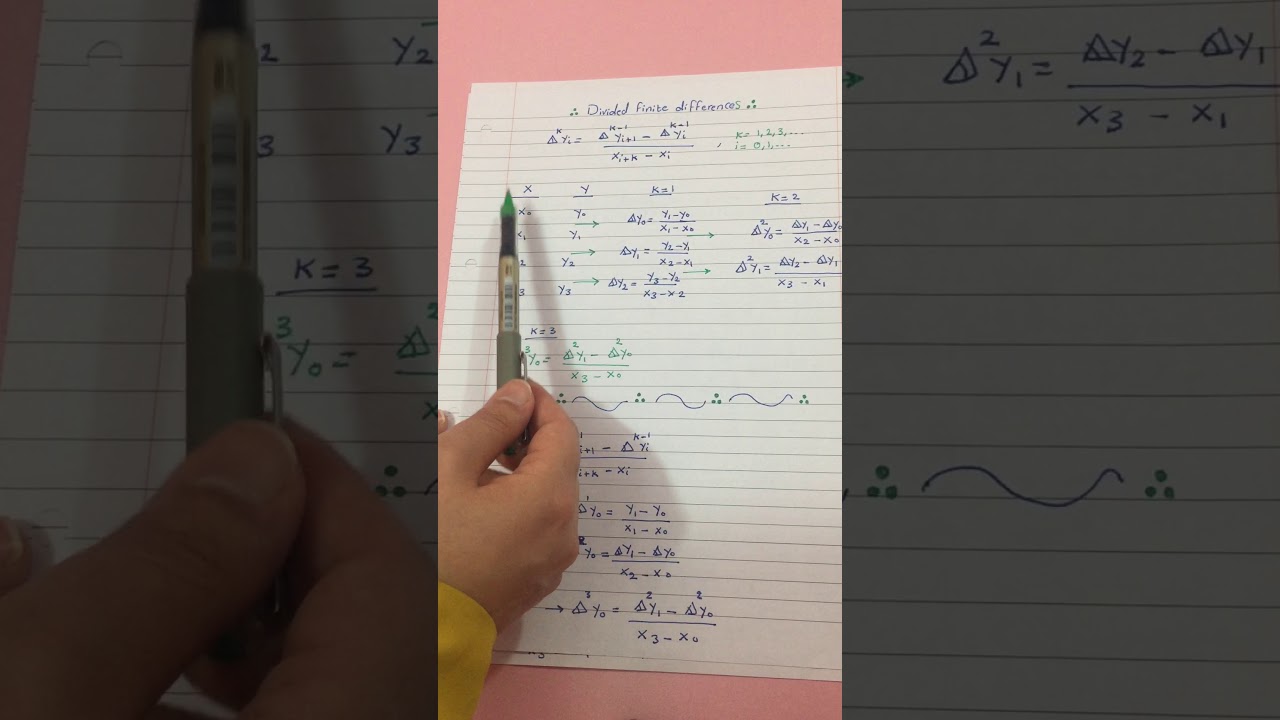 ∴ Divided finite differences ∴
Δᵏyᵢ = (Δᵏ⁻¹yᵢ₊₁ − Δᵏ⁻¹yᵢ) / (xᵢ₊ₖ − xᵢ) , k = 1,2,3,...
i = 0,1,...
x y k=1 k=2
x₀ y₀
Δy₀ = (y₁−y₀) / (x₁−x₀) → Δ²y₀ = (Δy₁ − Δy₀) / (x₂ − x₀)
x₁ y₁
→ Δy₁ = (y₂−y₁) / (x₂−x₁)
2 y₂ → Δ²y₁ = (Δy₂ − Δy₁) / (x₃ − x₁)
→ Δy₂ = (y₃−y₂) / (x₃−x2)
3 y₃
k=3
³y₀ = (Δ²y₁ − Δ²y₀) / (x₃ − x₀)
i+1 − Δᵏ⁻¹yᵢ / i+k − xᵢ
Δ¹y₀ = (y₁ − y₀) / (x₁ − x₀)
²y₀ = (Δy₁ − Δy₀) / (x₂ − x₀)
→ Δ³y₀ = (Δ²y₁ − Δ²y₀) / (x₃ − x₀)